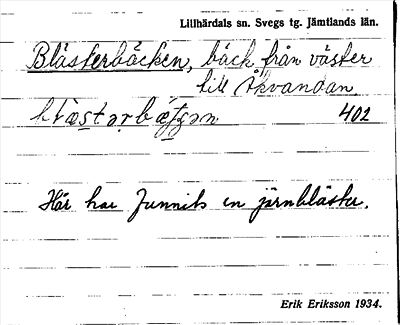 Lillhärdals sn. Svegs tg. Jämtlands län.
Blästerbäcken, bäck från väster
till Åkvandan
402
Här har funnits en järnbläster.
Erik Eriksson 1934.